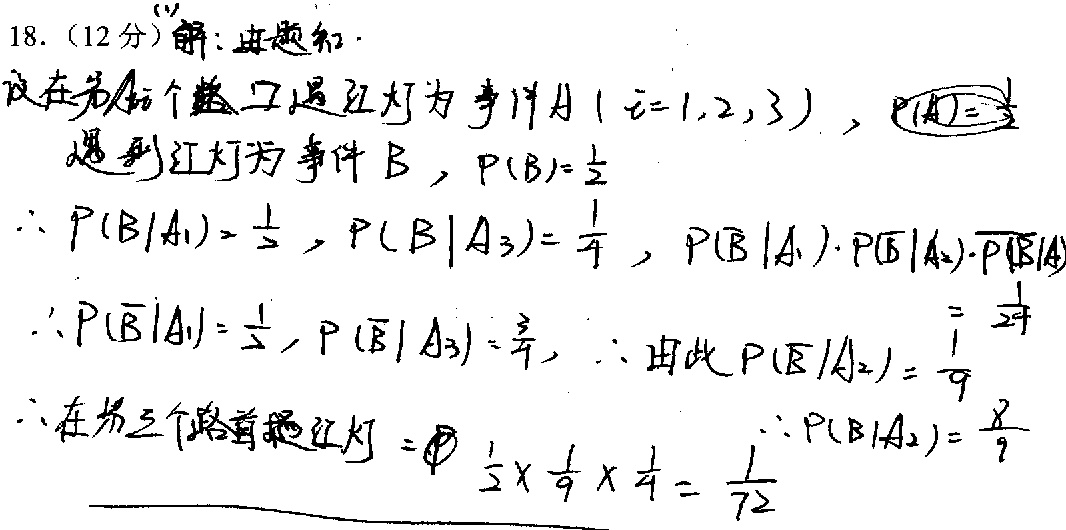 18.（12分）(1)解：由题知.
设在第i个路口遇红灯为事件A（i=1,2,3），P(A)=1/2
遇到红灯为事件B，P(B)=1/2
∴ P(B|A₁)=1/2，P(B|A₃)=1/4，P(B̅|A₁)·P(B̅|A₂)·P(B̅|A)
=1/24
∴P(B̅|A₁)=1/2，P(B̅|A₃)=3/4，∴由此P(B̅|A₂)=1/9
∴在第三个路首遇红灯 = 1/2×1/9×1/4=1/72
∴P(B|A₂)=8/9